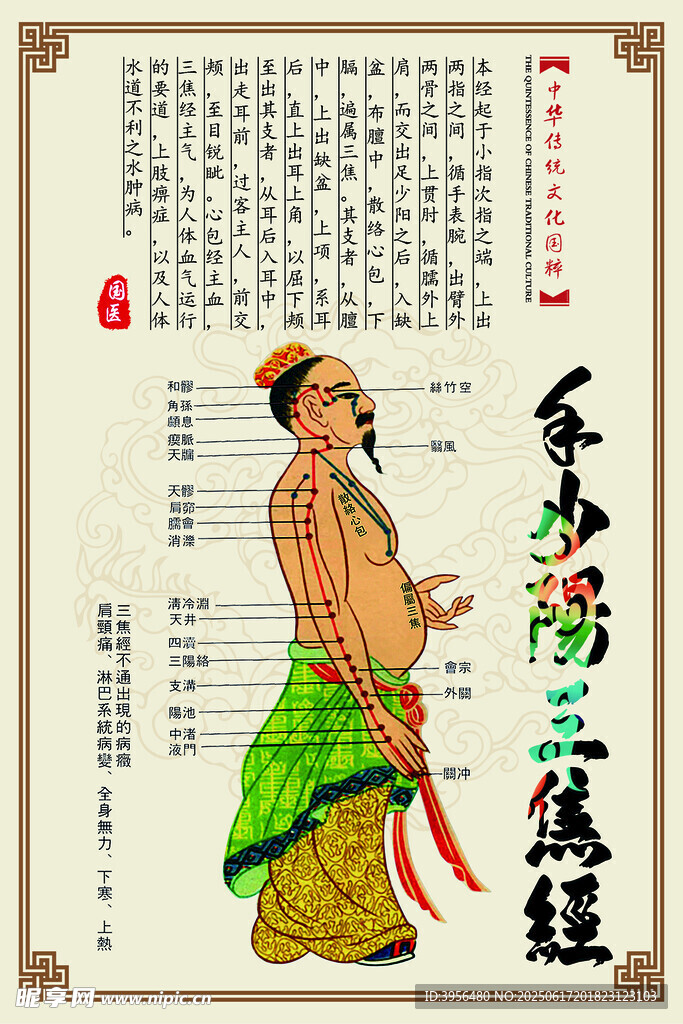 中华传统文化国粹
THE QUINTESSENCE OF CHINESE TRADITIONAL CULTURE
本经起于小指次指之端,上出
两指之间,循手表腕,出臂外
两骨之间,上贯肘,循臑外上
肩,而交出足少阳之后,入缺
盆,布膻中,散络心包,下
膈,遍属三焦。其支者,从膻
中,上出缺盆,上项,系耳
后,直上出耳上角,以屈下颊
至出其支者,从耳后入耳中,
出走耳前,过客主人,前交
颊,至目锐眦。心包经主血,
三焦经主气,为人体血气运行
的要道,上肢痹症,以及人体
水道不利之水肿病。
国医
手少陽三焦經
和髎
角孫
顱息
瘈脈
天牖
天髎
肩窌
臑會
消濼
清冷淵
天井
四瀆
三陽絡
支溝
陽池
中渚
液門
絲竹空
翳風
散絡心包
偏屬三焦
會宗
外關
關冲
三焦經不通出現的病癥
肩頸痛、淋巴系統病變、全身無力、下寒、上熱
昵享网 www.nipic.cn
ID:3956480 NO:20250617201823123103